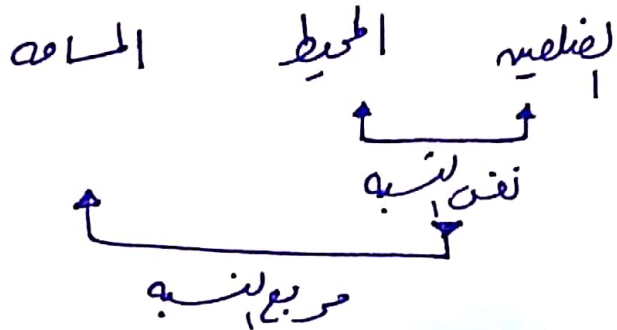 الضلعين المحيط المساحه
نفس النسبه
مربع النسبه